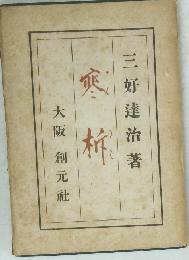 三好達治著
寒柝
大阪 創元社